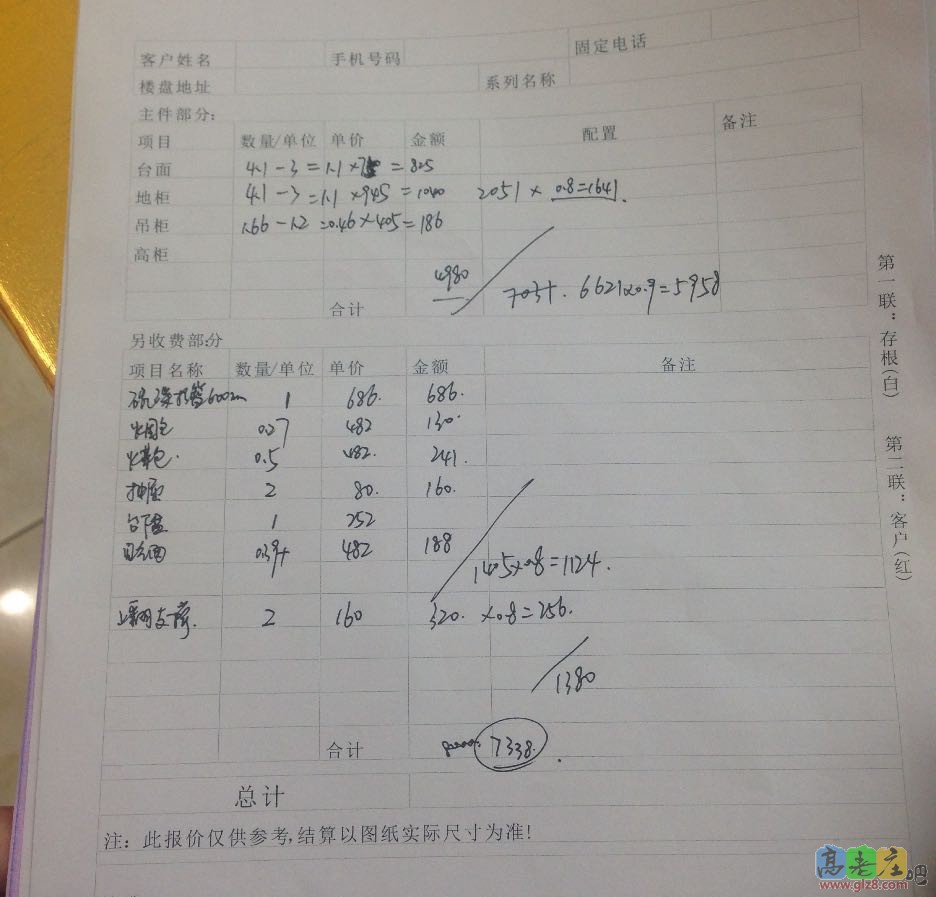 客户姓名 手机号码 固定电话
楼盘地址 系列名称
主件部分:
项目 数量/单位 单价 金额 配置 备注
台面 4.1-3=1.1× =825
地柜 4.1-3=1.1×945=1040 2051×0.8=1641.
吊柜 1.66-1.2=0.46×405=186
高柜
4980
合计 6621×0.9=5958
另收费部分
项目名称 数量/单位 单价 金额 备注
600mm 1 686. 686.
0.27 482 130.
0.5 482. 241.
抽屉 2 80. 160.
台下盆 1 252
0.39 482 188
1405×0.8=1124.
上翻支撑. 2 160 320. ×0.8=256.
1380
合计 7338.
总计
注: 此报价仅供参考,结算以图纸实际尺寸为准!
第一联:存根(白) 第二联:客户(红)
高老庄吧
www.glz8.com